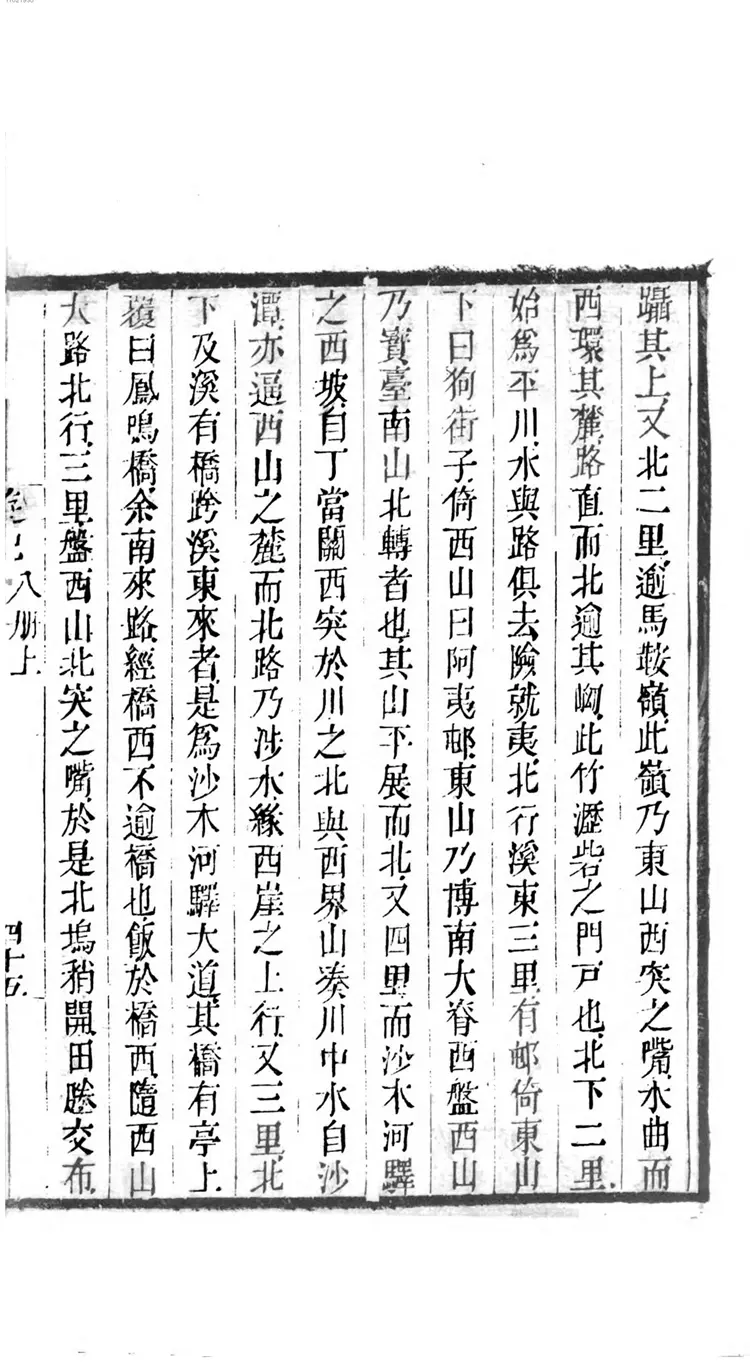 躡其上又北二里逾馬鞍嶺此嶺乃東山西突之嘴水曲而
西環其麓路直而北逾其㘭此竹瀝砦之門戸也北下二里
始爲平川水與路俱去險就夷北行溪東三里有邨倚東山
下曰狗街子倚西山曰阿夷邨東山乃博南大脊西盤西山
乃寶臺南山北轉者也其山平展而北又四里而沙木河驛
之西坡自丁當關西突於川之北與西界山湊川中水自沙
潭亦逼西山之麓而北路乃涉水緣西崖之上行又三里北
下及溪有橋跨溪東來者是爲沙木河驛大道其橋有亭上
覆曰鳳鳴橋余南來路經橋西不逾橋也飯於橋西隨西山
大路北行三里盤西山北突之嘴於是北塢稍開田塍交布
八册上
四十五